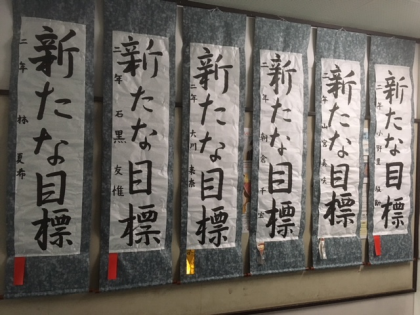 新たな目標
二年 林 夏希
新たな目標
二年 石黒 友惟
新たな目標
二年 大川 来奈
新たな目標
二年 朝倉 千宏
新たな目標
二年
新たな目標
二年